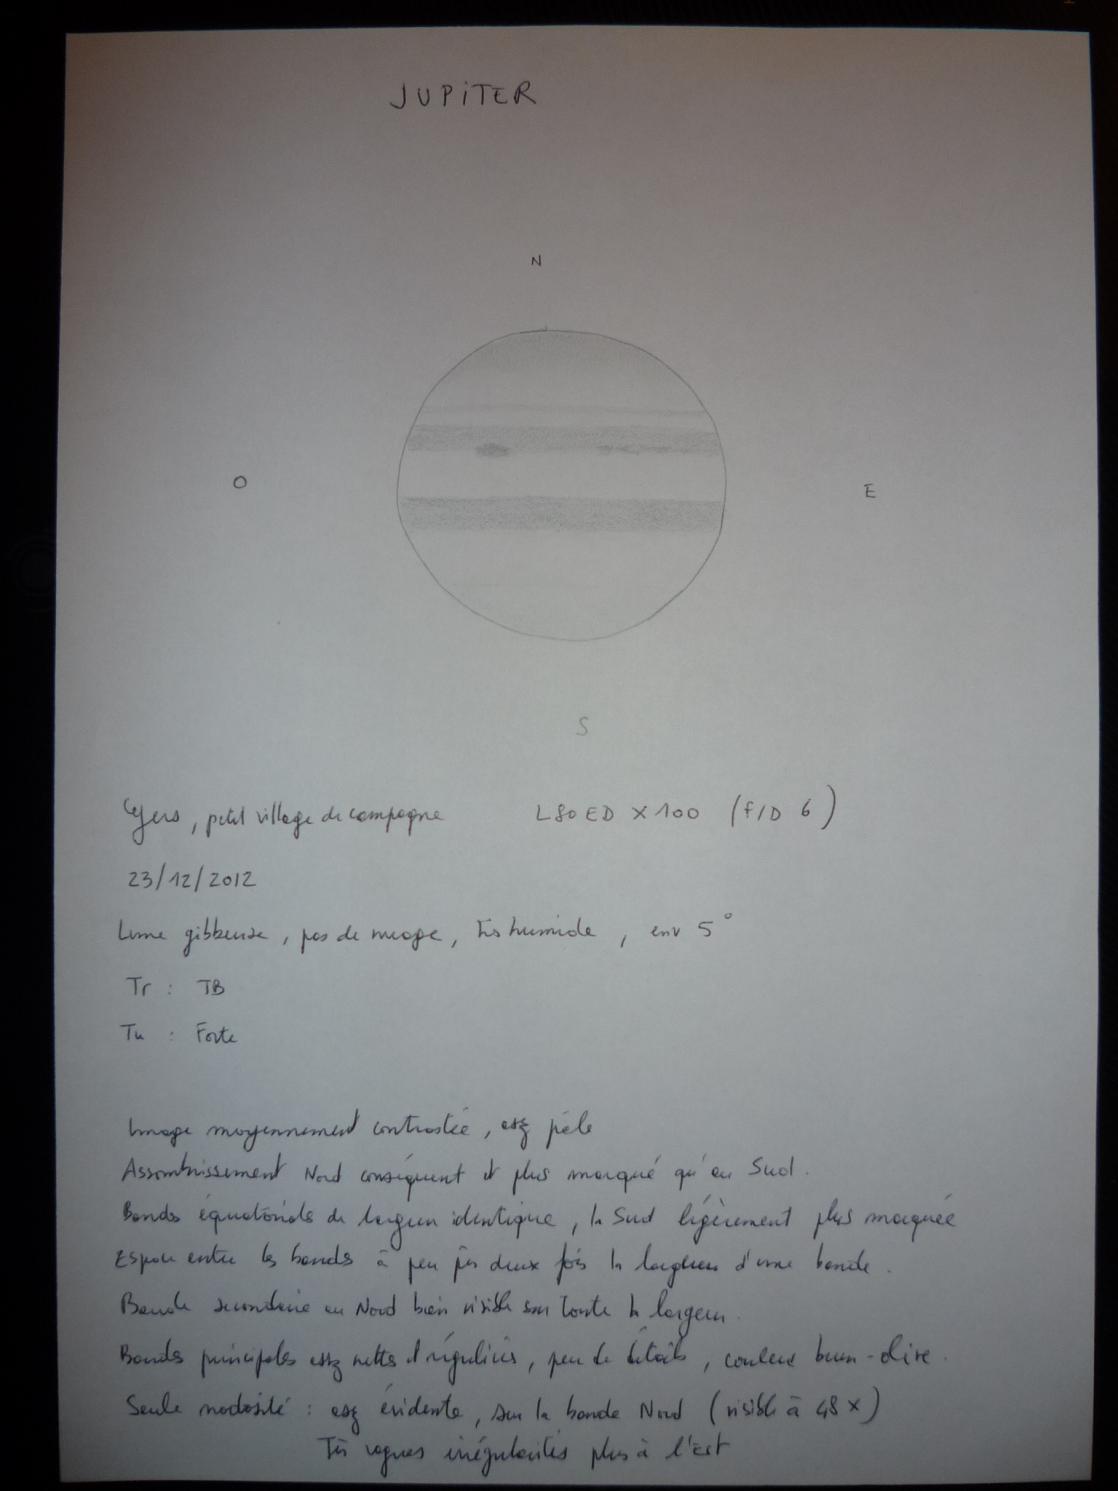 JUPITER
N
O
E
S
Gers, petit village de campagne L80ED X100 (f/D 6)
23/12/2012
Lune gibbeuse, pas de nuage, très humide, env 5°
Tr : TB
Tu : Forte
Image moyennement contrastée, assez pâle
Assombrissement Nord conséquent et plus marqué qu'au Sud.
Bandes équatoriales de largeur identique, la Sud légèrement plus marquée
Espace entre les bandes à peu près deux fois la largeur d'une bande.
Bande secondaire au Nord bien visible sur toute la largeur.
Bandes principales assez nettes et régulières, peu de détails, couleur brun-olive.
Seule nodosité : assez évidente, sur la bande Nord (visible à 48x)
Très vagues irrégularités plus à l'est